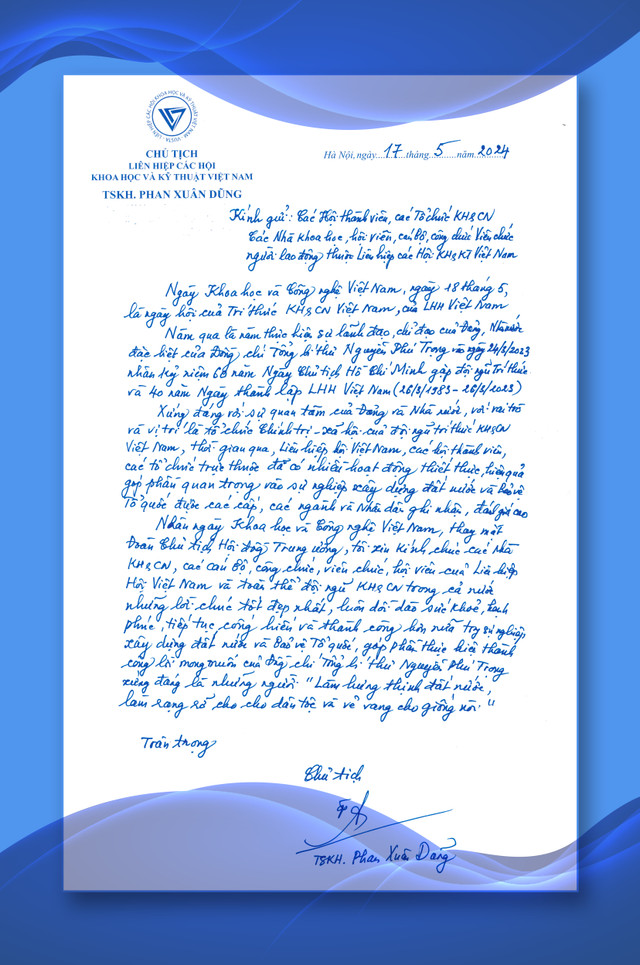 LIÊN HIỆP CÁC HỘI KHOA HỌC VÀ KỸ THUẬT VIỆT NAM
VUSTA
CHỦ TỊCH
LIÊN HIỆP CÁC HỘI
KHOA HỌC VÀ KỸ THUẬT VIỆT NAM
TSKH. PHAN XUÂN DŨNG
Hà Nội, ngày 17 tháng 5 năm 2024
Kính gửi: Các Hội thành viên, các Tổ chức KH&CN
Các Nhà khoa học, hội viên, cán bộ, công chức, viên chức
người lao động thuộc Liên hiệp các Hội KH&KT Việt Nam
Ngày Khoa học và Công nghệ Việt Nam, ngày 18 tháng 5,
là ngày hội của Trí thức KH&CN Việt Nam, của LHH Việt Nam
Năm qua là năm thực hiện sự lãnh đạo, chỉ đạo của Đảng, Nhà nước
đặc biệt của Đồng chí Tổng bí thư Nguyễn Phú Trọng vào ngày
nhân kỷ niệm 60 năm Ngày Chủ tịch Hồ Chí Minh gặp đội ngũ Trí thức
và 40 năm Ngày thành lập LHH Việt Nam (26/3/1983-26/3/2023)
Xứng đáng với sự quan tâm của Đảng và Nhà nước, với vai trò
và vị trí là tổ chức Chính trị - xã hội của đội ngũ trí thức KH&CN
Việt Nam, thời gian qua, Liên hiệp hội Việt Nam, các hội thành viên,
các tổ chức trực thuộc đã có nhiều hoạt động thiết thực, hiệu quả
góp phần quan trọng vào sự nghiệp xây dựng đất nước và bảo vệ
Tổ quốc được các cấp, các ngành và Nhân dân ghi nhận, đánh giá cao
Nhân ngày Khoa học và Công nghệ Việt Nam, thay mặt
Đoàn Chủ tịch Hội đồng Trung ương, tôi xin kính chúc các nhà
KH&CN, các cán bộ, công chức, viên chức, hội viên của Liên hiệp
Hội Việt Nam và toàn thể đội ngũ KH&CN trong cả nước
những lời chúc tốt đẹp nhất, luôn dồi dào sức khỏe, hạnh
phúc, tiếp tục cống hiến và thành công hơn nữa trong sự nghiệp
xây dựng đất nước và Bảo vệ Tổ quốc, góp phần thực hiện thành
công lời mong muốn của Đồng chí Tổng bí thư Nguyễn Phú Trọng
xứng đáng là những người "Làm hưng thịnh đất nước,
làm rạng rỡ cho cho dân tộc và vẻ vang cho giống nòi."
Trân trọng
Chủ tịch
TSKH. Phan Xuân Dũng